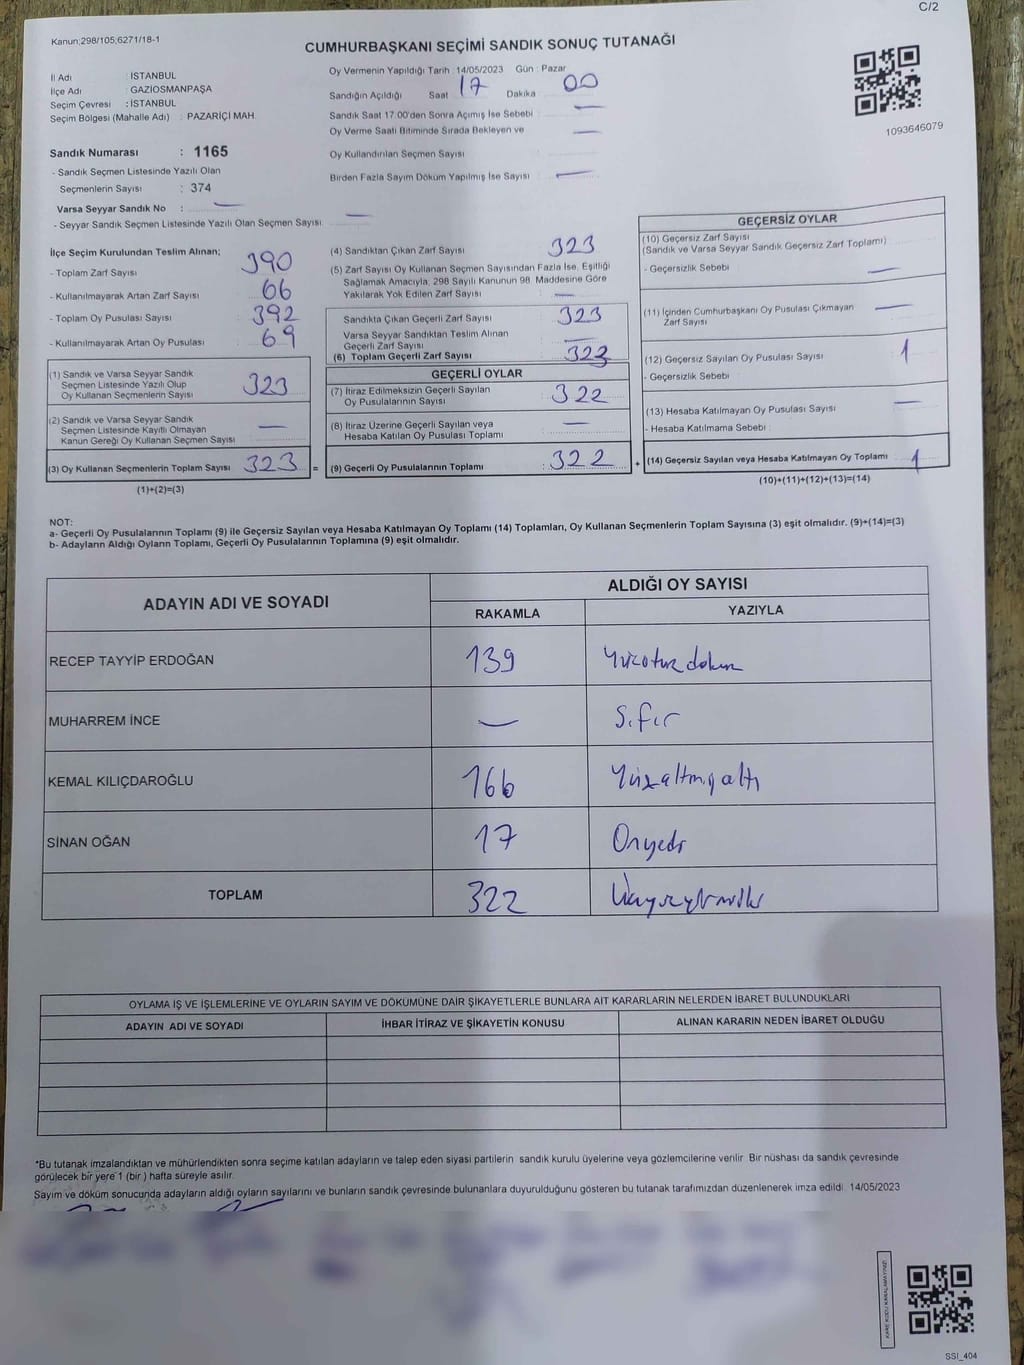 C/2
Kanun:298/105;6271/18-1
CUMHURBAŞKANI SEÇİMİ SANDIK SONUÇ TUTANAĞI
İl Adı : İSTANBUL
İlçe Adı : GAZİOSMANPAŞA
Seçim Çevresi : İSTANBUL
Seçim Bölgesi (Mahalle Adı) : PAZARİÇİ MAH.
Oy Vermenin Yapıldığı Tarih : 14/05/2023 Gün : Pazar
Sandığın Açıldığı Saat 17 Dakika 00
Sandık Saat 17.00'den Sonra Açılmış İse Sebebi : —
Oy Verme Saati Bitiminde Sırada Bekleyen ve —
Oy Kullandırılan Seçmen Sayısı
Birden Fazla Sayım Döküm Yapılmış İse Sayısı : —
1093646079
Sandık Numarası : 1165
- Sandık Seçmen Listesinde Yazılı Olan
Seçmenlerin Sayısı : 374
Varsa Seyyar Sandık No : —
- Seyyar Sandık Seçmen Listesinde Yazılı Olan Seçmen Sayısı : —
İlçe Seçim Kurulundan Teslim Alınan;
- Toplam Zarf Sayısı 390
- Kullanılmayarak Artan Zarf Sayısı 66
- Toplam Oy Pusulası Sayısı 392
- Kullanılmayarak Artan Oy Pusulası 69
(1) Sandık ve Varsa Seyyar Sandık
Seçmen Listesinde Yazılı Olup
Oy Kullanan Seçmenlerin Sayısı 323
(2) Sandık ve Varsa Seyyar Sandık
Seçmen Listesinde Kayıtlı Olmayan
Kanun Gereği Oy Kullanan Seçmen Sayısı —
(3) Oy Kullanan Seçmenlerin Toplam Sayısı 323 =
(1)+(2)=(3)
(4) Sandıktan Çıkan Zarf Sayısı 323
(5) Zarf Sayısı Oy Kullanan Seçmen Sayısından Fazla İse, Eşitliği
Sağlamak Amacıyla; 298 Sayılı Kanunun 98. Maddesine Göre
Yakılarak Yok Edilen Zarf Sayısı : —
Sandıkta Çıkan Geçerli Zarf Sayısı 323
Varsa Seyyar Sandıktan Teslim Alınan
Geçerli Zarf Sayısı —
(6) Toplam Geçerli Zarf Sayısı 323
GEÇERLİ OYLAR
(7) İtiraz Edilmeksizin Geçerli Sayılan
Oy Pusulalarının Sayısı 322
(8) İtiraz Üzerine Geçerli Sayılan veya
Hesaba Katılan Oy Pusulası Toplamı —
(9) Geçerli Oy Pusulalarının Toplamı : 322 +
GEÇERSİZ OYLAR
(10) Geçersiz Zarf Sayısı
(Sandık ve Varsa Seyyar Sandık Geçersiz Zarf Toplamı)
- Geçersizlik Sebebi : —
(11) İçinden Cumhurbaşkanı Oy Pusulası Çıkmayan —
Zarf Sayısı
(12) Geçersiz Sayılan Oy Pusulası Sayısı 1
- Geçersizlik Sebebi
(13) Hesaba Katılmayan Oy Pusulası Sayısı —
- Hesaba Katılmama Sebebi :
(14) Geçersiz Sayılan veya Hesaba Katılmayan Oy Toplamı 1
(10)+(11)+(12)+(13)=(14)
NOT:
a- Geçerli Oy Pusulalarının Toplamı (9) ile Geçersiz Sayılan veya Hesaba Katılmayan Oy Toplamı (14) Toplamları, Oy Kullanan Seçmenlerin Toplam Sayısına (3) eşit olmalıdır. (9)+(14)=(3)
b- Adayların Aldığı Oyların Toplamı, Geçerli Oy Pusulalarının Toplamına (9) eşit olmalıdır.
ADAYIN ADI VE SOYADI
ALDIĞI OY SAYISI
RAKAMLA YAZIYLA
RECEP TAYYİP ERDOĞAN 139 Yüzotuzdokuz
MUHARREM İNCE — Sıfır
KEMAL KILIÇDAROĞLU 166 Yüzaltmışaltı
SİNAN OĞAN 17 Onyedi
TOPLAM 322 Üçyüzyirmiiki
OYLAMA İŞ VE İŞLEMLERİNE VE OYLARIN SAYIM VE DÖKÜMÜNE DAİR ŞİKAYETLERLE BUNLARA AİT KARARLARIN NELERDEN İBARET BULUNDUKLARI
ADAYIN ADI VE SOYADI İHBAR İTİRAZ VE ŞİKAYETİN KONUSU ALINAN KARARIN NEDEN İBARET OLDUĞU
*Bu tutanak imzalandıktan ve mühürlendikten sonra seçime katılan adayların ve talep eden siyasi partilerin sandık kurulu üyelerine veya gözlemcilerine verilir. Bir nüshası da sandık çevresinde
görülecek bir yere 1 (bir) hafta süreyle asılır.
Sayım ve döküm sonucunda adayların aldığı oyların sayılarını ve bunların sandık çevresinde bulunanlara duyurulduğunu gösteren bu tutanak tarafımızdan düzenlenerek imza edildi. 14/05/2023
KARE KODU KARALAMAYINIZ!
SSI_404